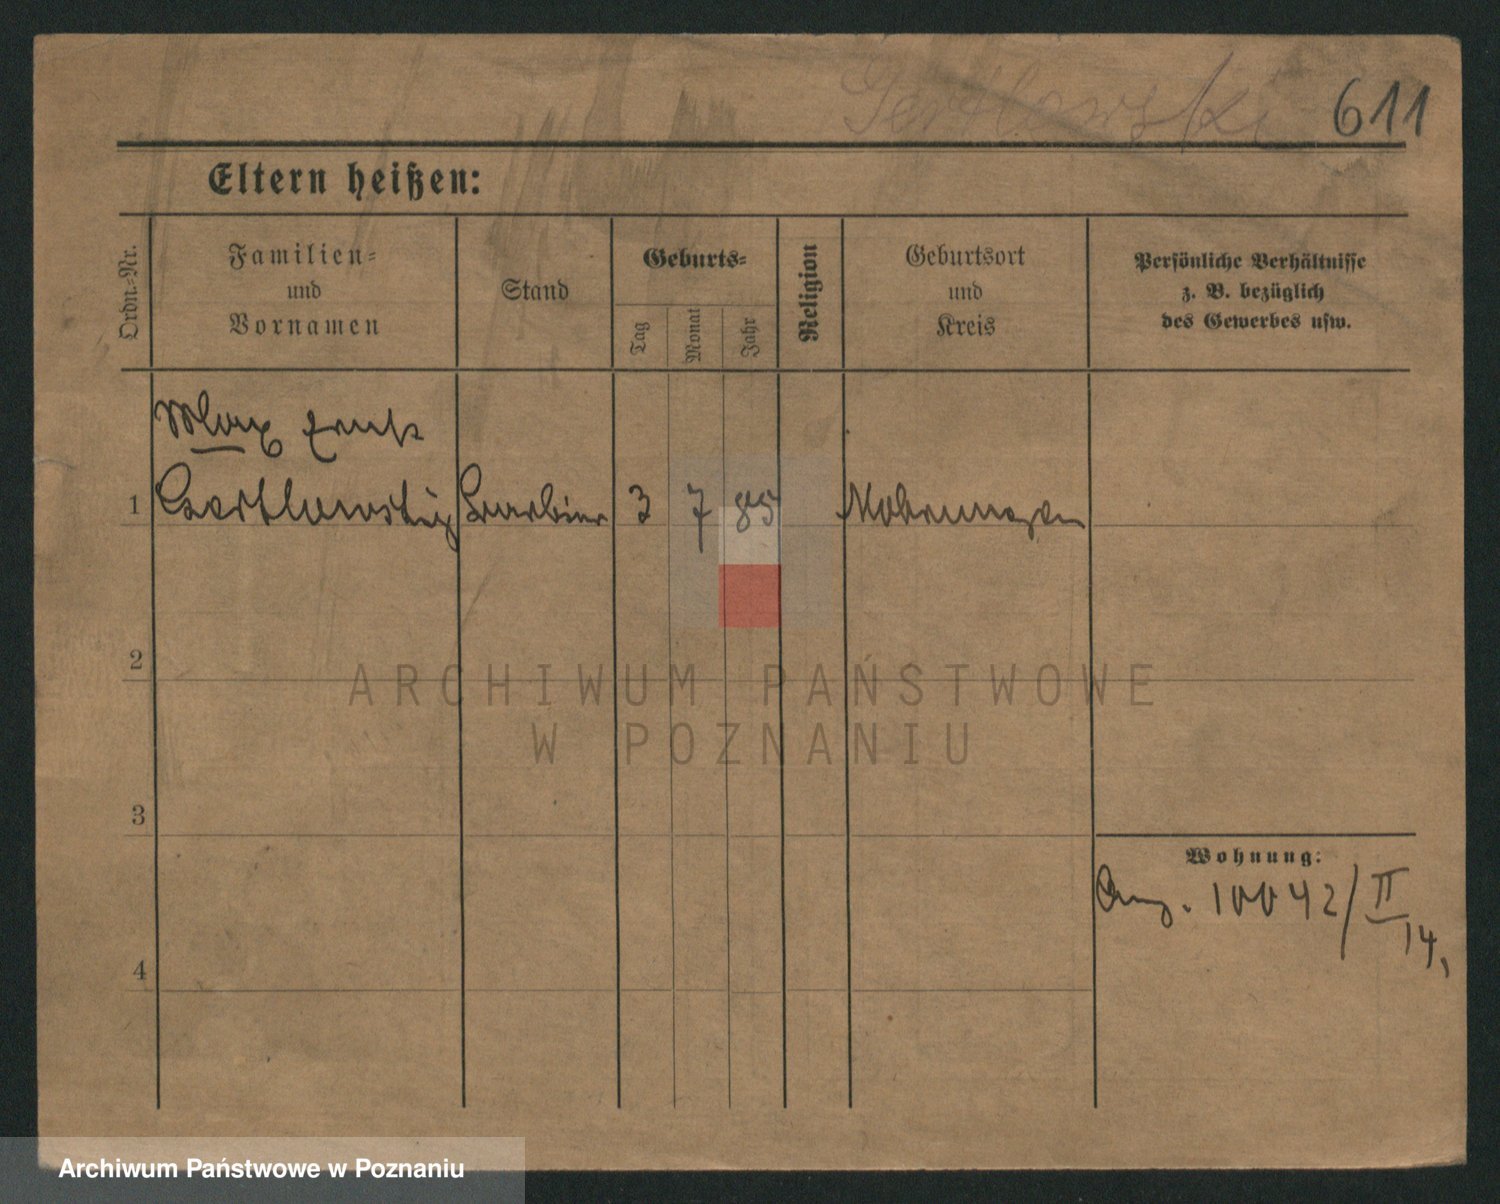 Gertlowski 611
Eltern heißen:
Ordn.-Nr.
Familien-
und
Vornamen
Stand
Geburts-
Tag
Monat
Jahr
Religion
Geburtsort
und
Kreis
Persönliche Verhältnisse
z. B. bezüglich
des Gewerbes usw.
Max Ernst
1 Barbier 3 7 85 Mohrungen
2
ARCHIWUM PAŃSTWOWE
W POZNANIU
3
Wohnung:
10042/II
14,
4
Archiwum Państwowe w Poznaniu